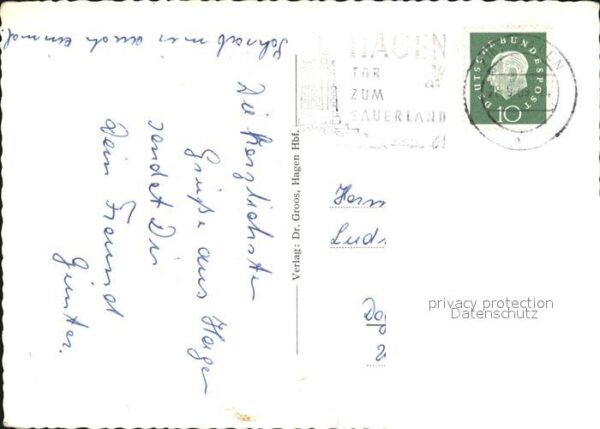 Die herzlichsten
Grüße aus Hagen
sendet Dir
Dein Freund
Günter.
Schreib mir auch einmal.
Verlag: Dr. Groos, Hagen Hbf.
HAGEN
TOR
ZUM
SAUERLAND
DEUTSCHE BUNDESPOST
10
Herrn
Ludw
privacy protection
Datenschutz